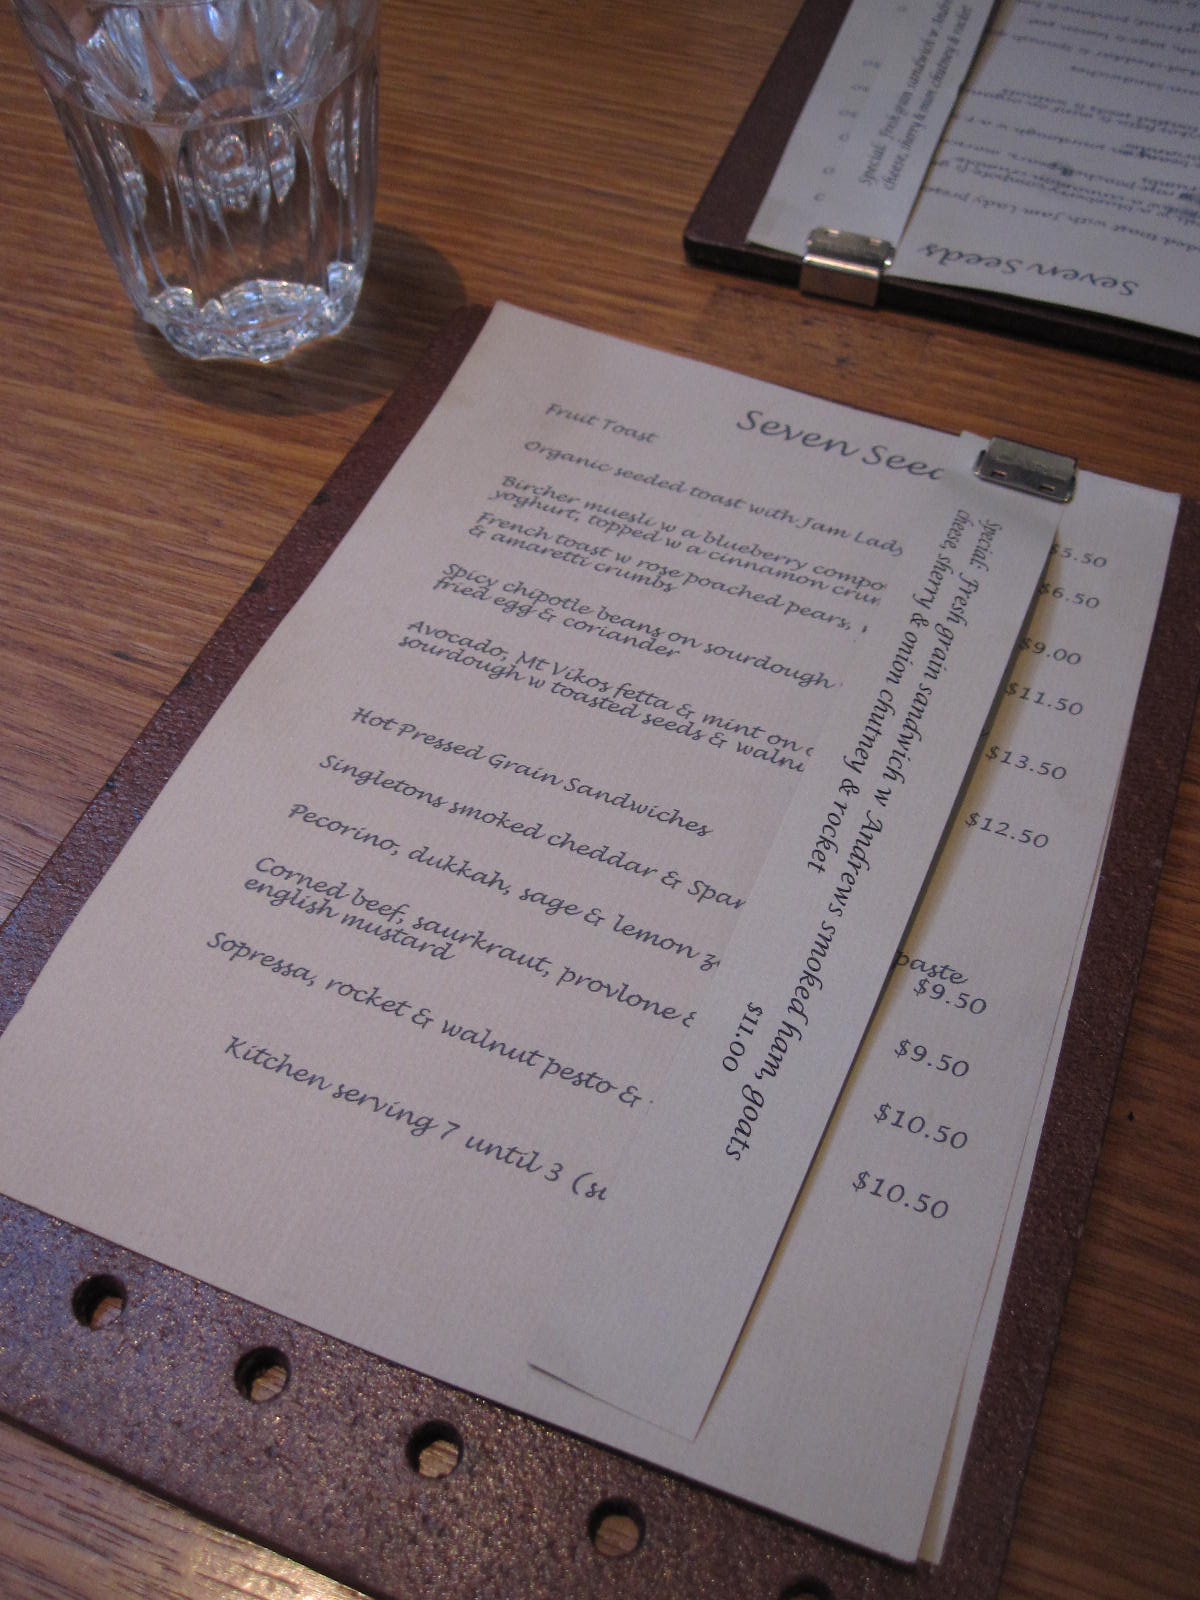 Seven Seed
Fruit Toast
$5.50
Organic seeded toast with Jam Lady
$6.50
Bircher muesli w a blueberry compo
yoghurt, topped w a cinnamon crum
$9.00
French toast w rose poached pears,
& amaretti crumbs
$11.50
Spicy chipotle beans on sourdough
fried egg & coriander
$13.50
Avocado, Mt Vikos fetta & mint on
sourdough w toasted seeds & walnu
$12.50
Hot Pressed Grain Sandwiches
Singletons smoked cheddar & Span
paste
$9.50
Pecorino, dukkah, sage & lemon z
$9.50
Corned beef, saurkraut, provlone &
english mustard
$10.50
Sopressa, rocket & walnut pesto &
$10.50
Kitchen serving 7 until 3 (su
Special: Fresh grain sandwich w Andrews smoked ham, goats
cheese, sherry & onion chutney & rocket
$11.00
Seven Seeds
Special: Fresh grain sandwich w Andre
cheese, sherry & onion chutney & rocket